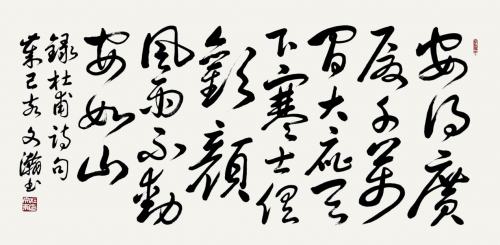 安得廣
厦千萬
間大庇天
下寒士俱
歡顔
風雨不動
安如山
録杜甫詩句
癸巳春文瀚書